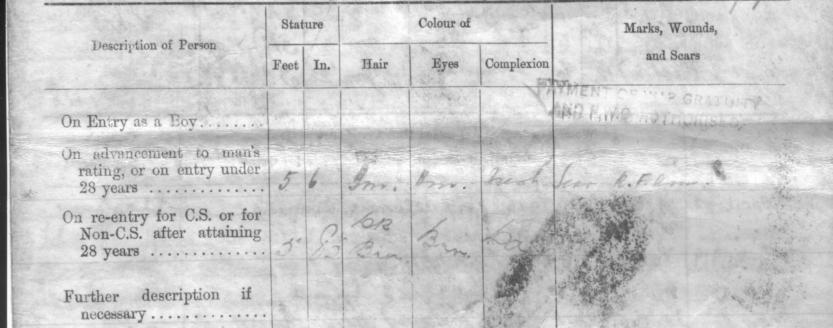 Description of Person
Stature
Colour of
Marks, Wounds,
and Scars
Feet In. Hair Eyes Complexion
PAYMENT OF WAR GRATUITY
AND AUTHORISED
On Entry as a Boy........
On advancement to man's
rating, or on entry under
28 years .............. 5 6 Fresh Scar
On re-entry for C.S. or for
Non-C.S. after attaining
28 years .............. 5 Brn. Brn.
Further description if
necessary ..............